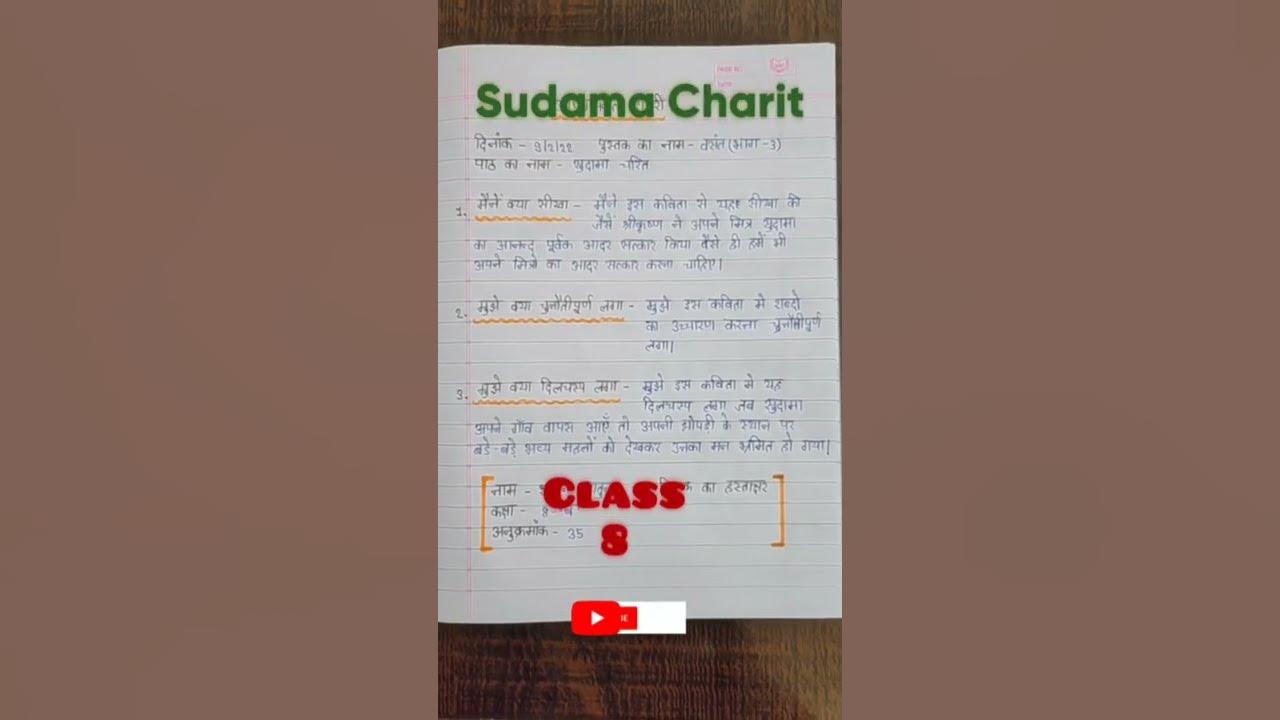 Sudama Charit
दिनाँक - 9/2/22 पुस्तक का नाम - वसंत (भाग -3)
पाठ का नाम - सुदामा चरित
1. मैनें क्या सीखा - मैंने इस कविता से यह सीखा की
जैसे श्रीकृष्ण ने अपने मित्र सुदामा
का आनन्द पूर्वक आदर सत्कार किया वैसे ही हमें भी
अपने मित्रो का आदर सत्कार करना चाहिए।
2. मुझे क्या चुनौतीपूर्ण लगा - मुझे इस कविता मे शब्दो
का उच्चारण करना चुनौतीपूर्ण
लगा।
3. मुझे क्या दिलचस्प लगा - मुझे इस कविता मे यह
दिलचस्प लगा जब सुदामा
अपने गाँव वापस आएँ तो अपनी झोपड़ी के स्थान पर
बड़े-बड़े भव्य महलों को देखकर उनका मन भ्रमित हो गया।
नाम - का हस्ताक्षर
CLASS
कक्षा - 8
अनुक्रमाँक - 35
8